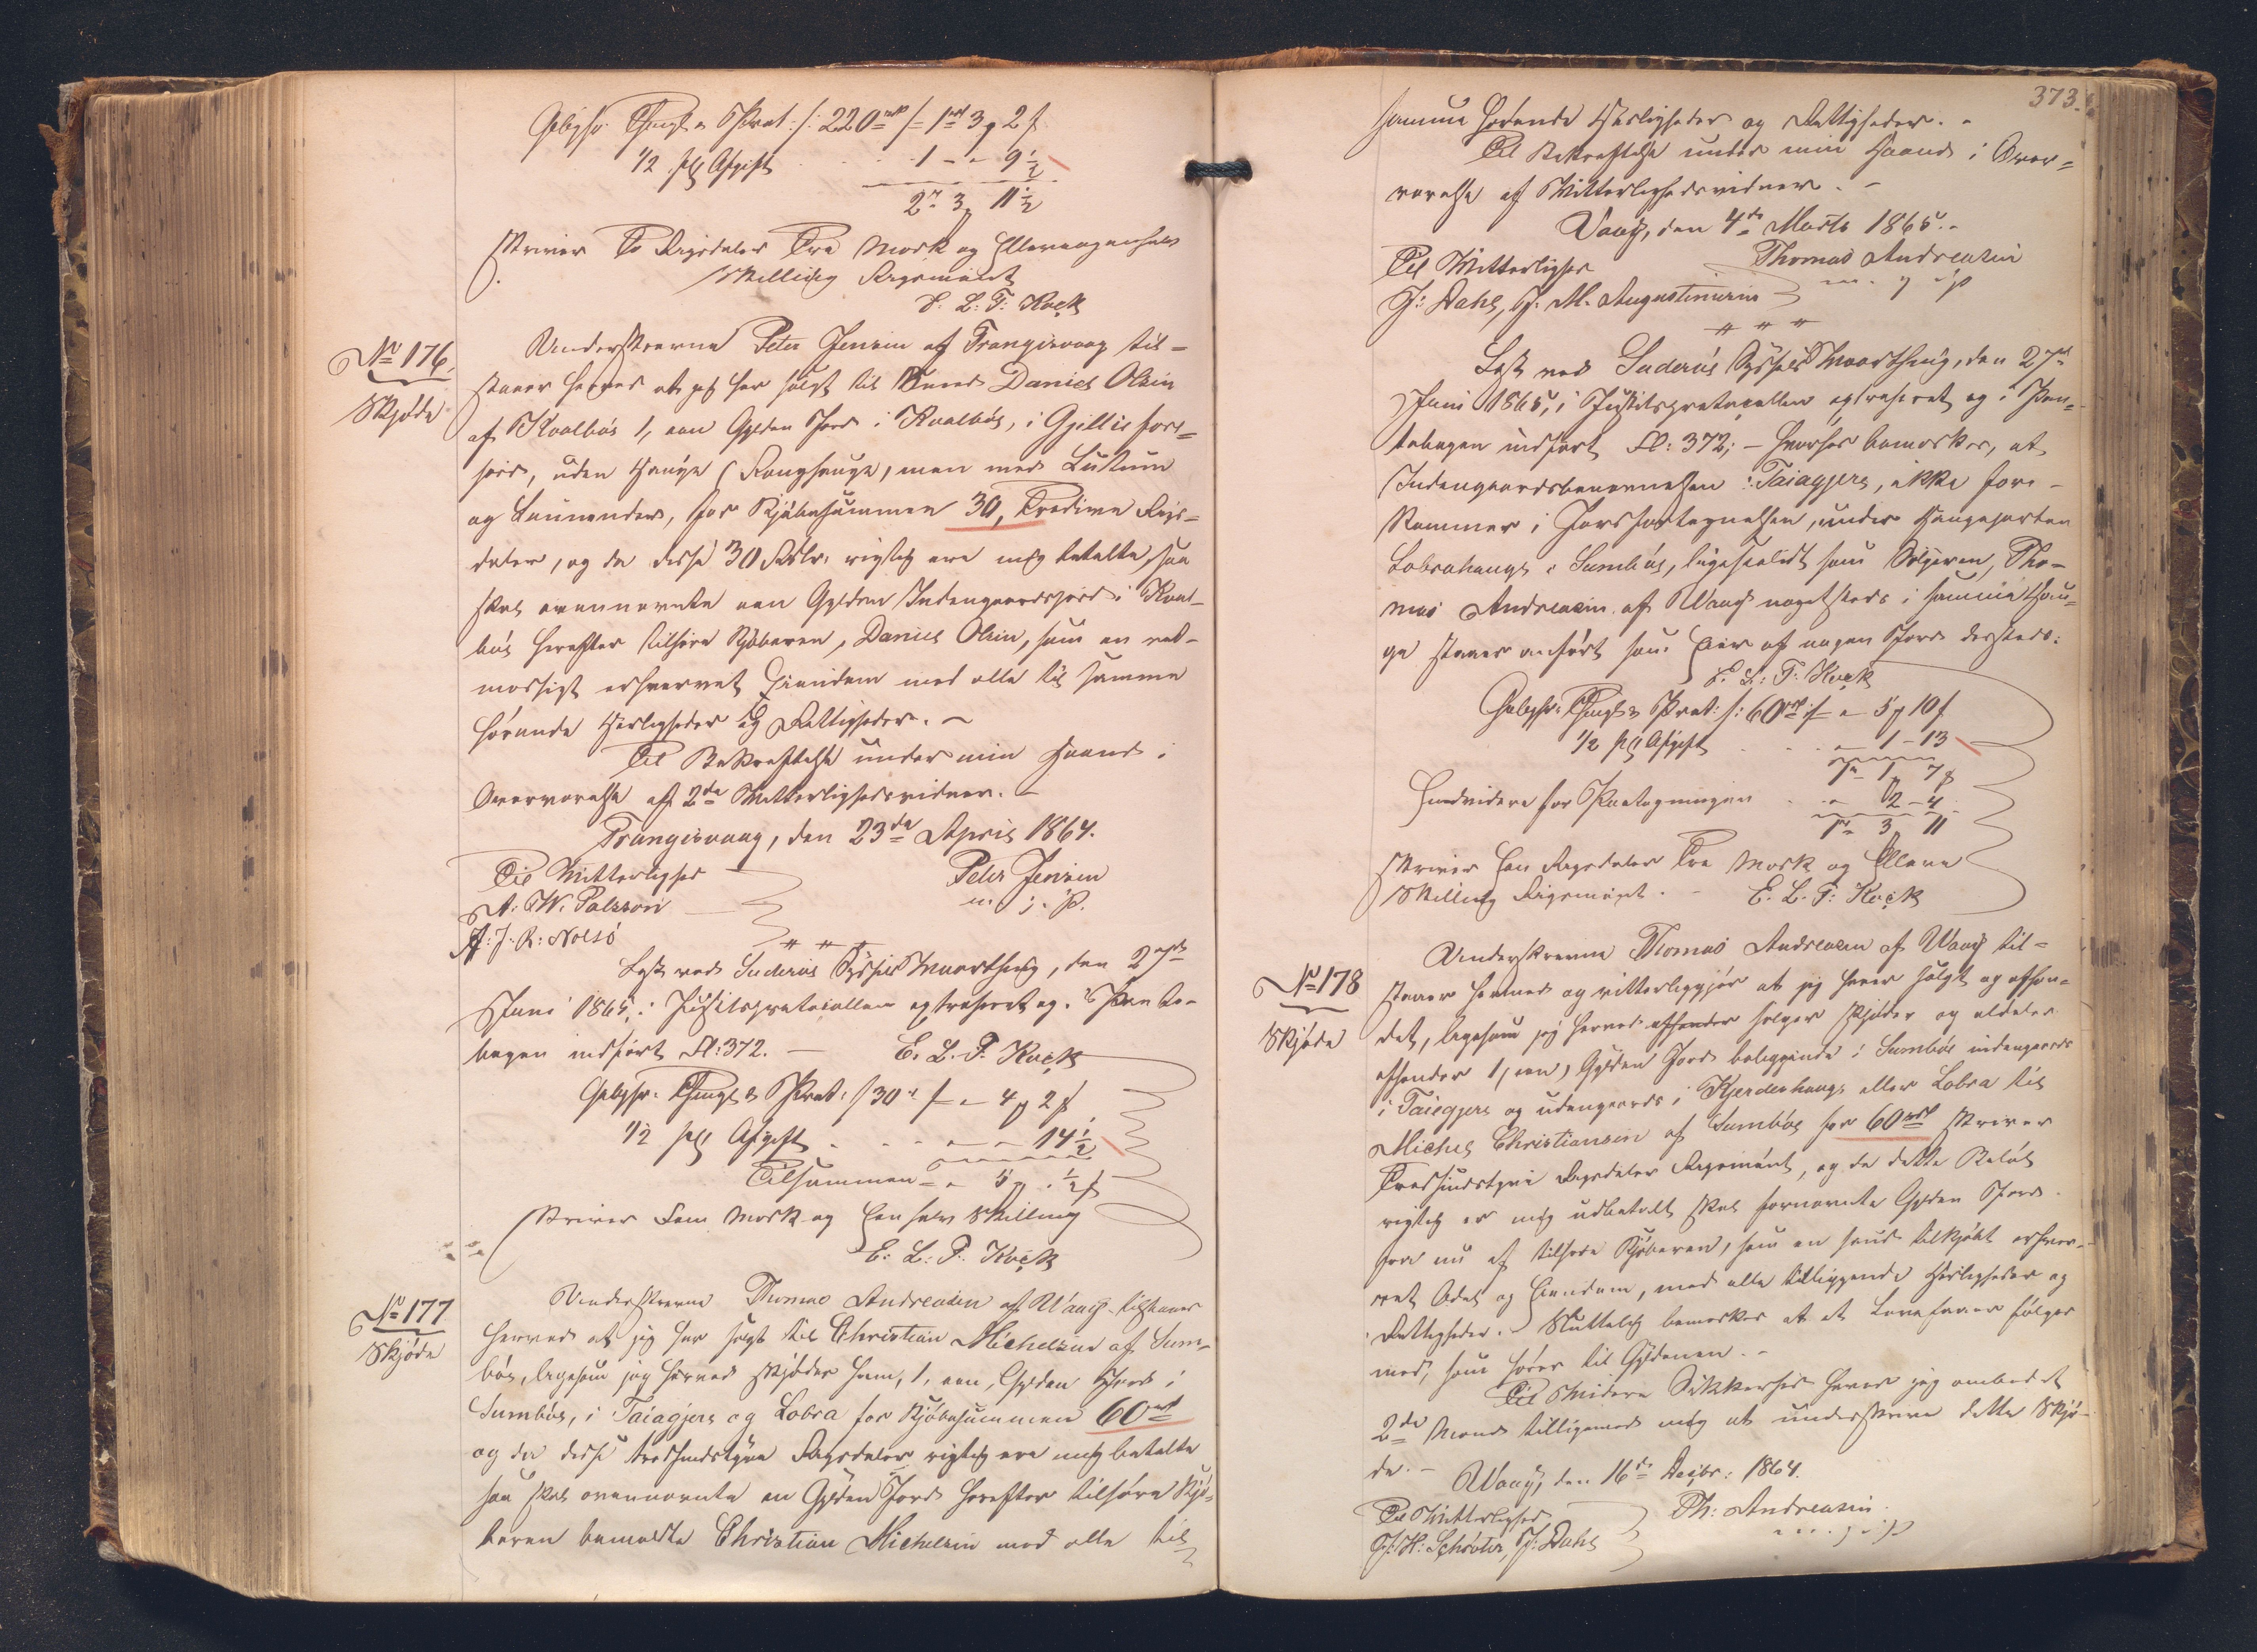 Gebyhr: Thingl. & Skrat: /: 220 rd /= 1 rd 3 ₰ 2 s
1/2 pCt Afgift . . . 1 - - 9 1/2
2 rd 3 ₰ 11 1/2
skriver To Rigsdaler Tre Mark og Ellevoghalv
Skilling Rigsmønt
E. L. T. Kock
No 176.
Skjøde
Underskrevne Peter Jensen af Trangisvaag til=
staaer herved at jeg har solgt til Daniel Olsen
af Kvalbø 1, een Gylden Jord i Kvalbø, i Gjillis fore=
jord, uden Hauge, men med Luttum
og Lunnender, for Kjøbesummen 30, Tredive Rigs=
daler, og da disse 30 Rdlr. rigtig ere mig betalte, saa
skal ovennævnte een Gylden Indengaardsjord i Kval=
bø herefter tilhøre Kjøberen, Daniel Olsen, som en ret=
mæssigt erhvervet Eiendom med alle til samme
hørende Herligheder og Rettigheder. -
Til Bekræftelse under min Haand i
Overværelse af 2de Vitterlighedsvidner. -
Trangisvaag, den 23de April 1864.
Til Vitterlighed
Peter Jensen
A. W. Palsson
m. j. P.
J. R. Nolsø
Læst ved Suderø Syssels Vaarthing, den 27de
Juni 1865, i Justitsprotocollen extraheret og i Pante=
bogen indført Fl: 372. -
E. L. T. Kock
Gebyhr: Thingl. & Skrat: / 30 rd /= - 4 ₰ 2 s
1/2 pCt Afgift . . . - - 14 1/2
Tilsammen = - 5 ₰ . 1/2 s
skriver Fem Mark og Een halv Skilling
E. L. T. Kock
No 177
Skjøde
Underskrevne Thomas Andreasen af Waag tilstaaer
herved at jeg har solgt til Christian Michelsen af Sum=
bø, ligesom jeg herved skjøder ham, 1, een, Gylden Jord i
Sumbø, i Taiagjera og Lobra for Kjøbesummen 60 rd
og da disse tredsindstyve Rigsdaler rigtig ere mig betalte
saa skal ovennævnte en Gylden Jord herefter tilhøre Kjø=
beren bemeldte Christian Michelsen med alle til
373.
samme hørende Herligheder og Rettigheder. -
Til Bekræftelse under min Haand i Over=
værelse af Vitterlighedsvidner. -
Vaag, den 4de Marts 1865.
Til Vitterlighed
Thomas Andreasen
J: Dahl, J. M. Augustinusen
Læst ved Suderø Syssels Vaarthing, den 27de
Juni 1865, i Justitsprotocollen extraheret og i Pan=
tebogen indført Fl: 372; - hvorhos bemærkes, at
Indengaardsbenævnelsen: Taiagjera, ikke fore=
kommer i Jordfortegnelsen, under Haugeparten
Lobrahauge i Sumbø, ligesaalidt som Sælgeren, Tho=
mas Andreasen af Waag nogetsteds i samme Hau=
ge staaer anført som Eier af nogen Jord dersteds:
E. L. T. Kock
Gebyhr: Thingl. & Skrat: /: 60 rd /= - 5 ₰ 10 s
1/2 pCt Afgift . . . - 1 - 13
1 rd 1 ₰ 7 s
Endvidere for Paategningen . . - 2 - 4
1 rd 3 11
skriver Een Rigsdaler Tre Mark og Elleve
Skilling Rigsmønt. -
E. L. T. Kock
No 178
Skjøde
Underskrevne Thomas Andreasen af Waag til=
staaer herved og vitterliggjør at jeg haver solgt og afhæn=
det, ligesom jeg herved afhænder sælger skjøder og aldeles
afhænder 1, een, Gylden Jord beliggende i Sumbø indengaards
i Taiegjera og udengaards i Kjerdenhauge eller Lobra til
Michel Christiansen af Sumbø for 60 rd skriver
Tredsindstyve Rigsdaler Rigsmønt, og da dette Beløb
rigtig er mig udbetalt skal fornævnte Gylden Jord
fra nu af tilhøre Kjøberen, som en sand tilkjøbt erhver=
vet Odel og Eiendom, med alle tilliggende Herligheder og
Rettigheder. Sluttelig bemærkes at et følger
med, som hører til Gyldenen. -
Til ydermere Sikkerhed haver jeg ombedet
2de Mænd tilligemed mig at underskrive dette Skjø=
de. -
Waag, den 16de Decbr: 1864.
Til Vitterlighed
Th: Andreasen
J. H: Schrøter, J: Dahl